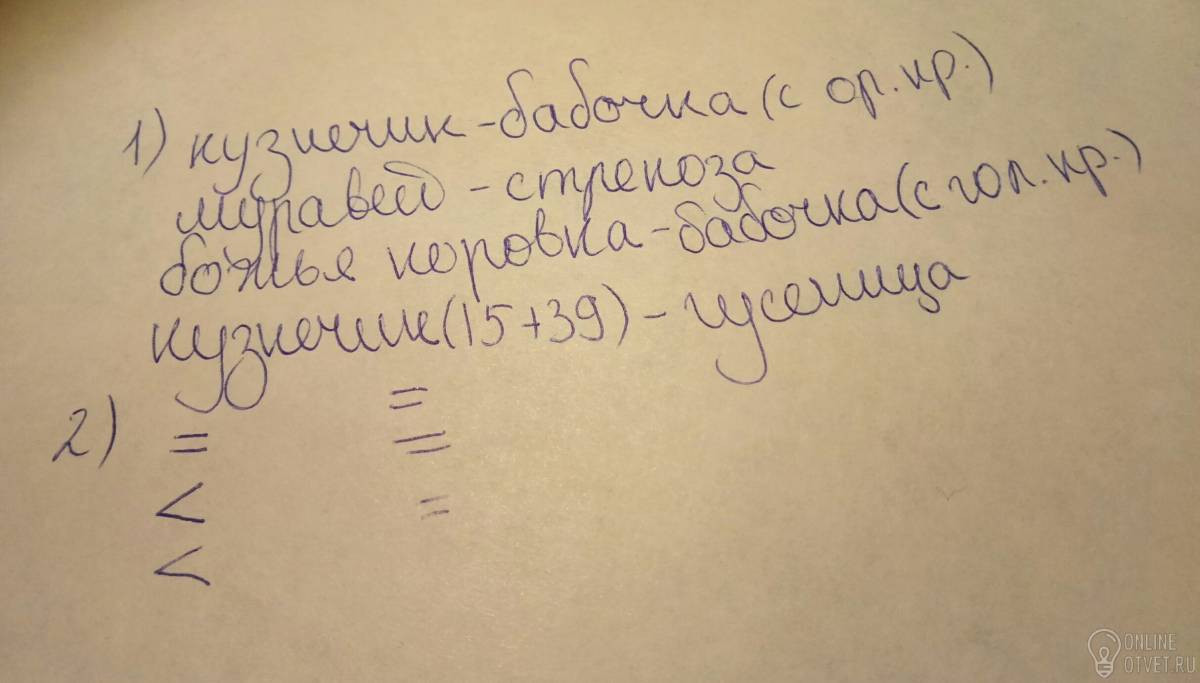 1) кузнечик-бабочка (с ор. кр.)
муравей - стрекоза
божья коровка-бабочка (с гол. кр.)
кузнечик (15+39) - гусеница
2) = =
< =
< =
ONLINE
OTVET.RU